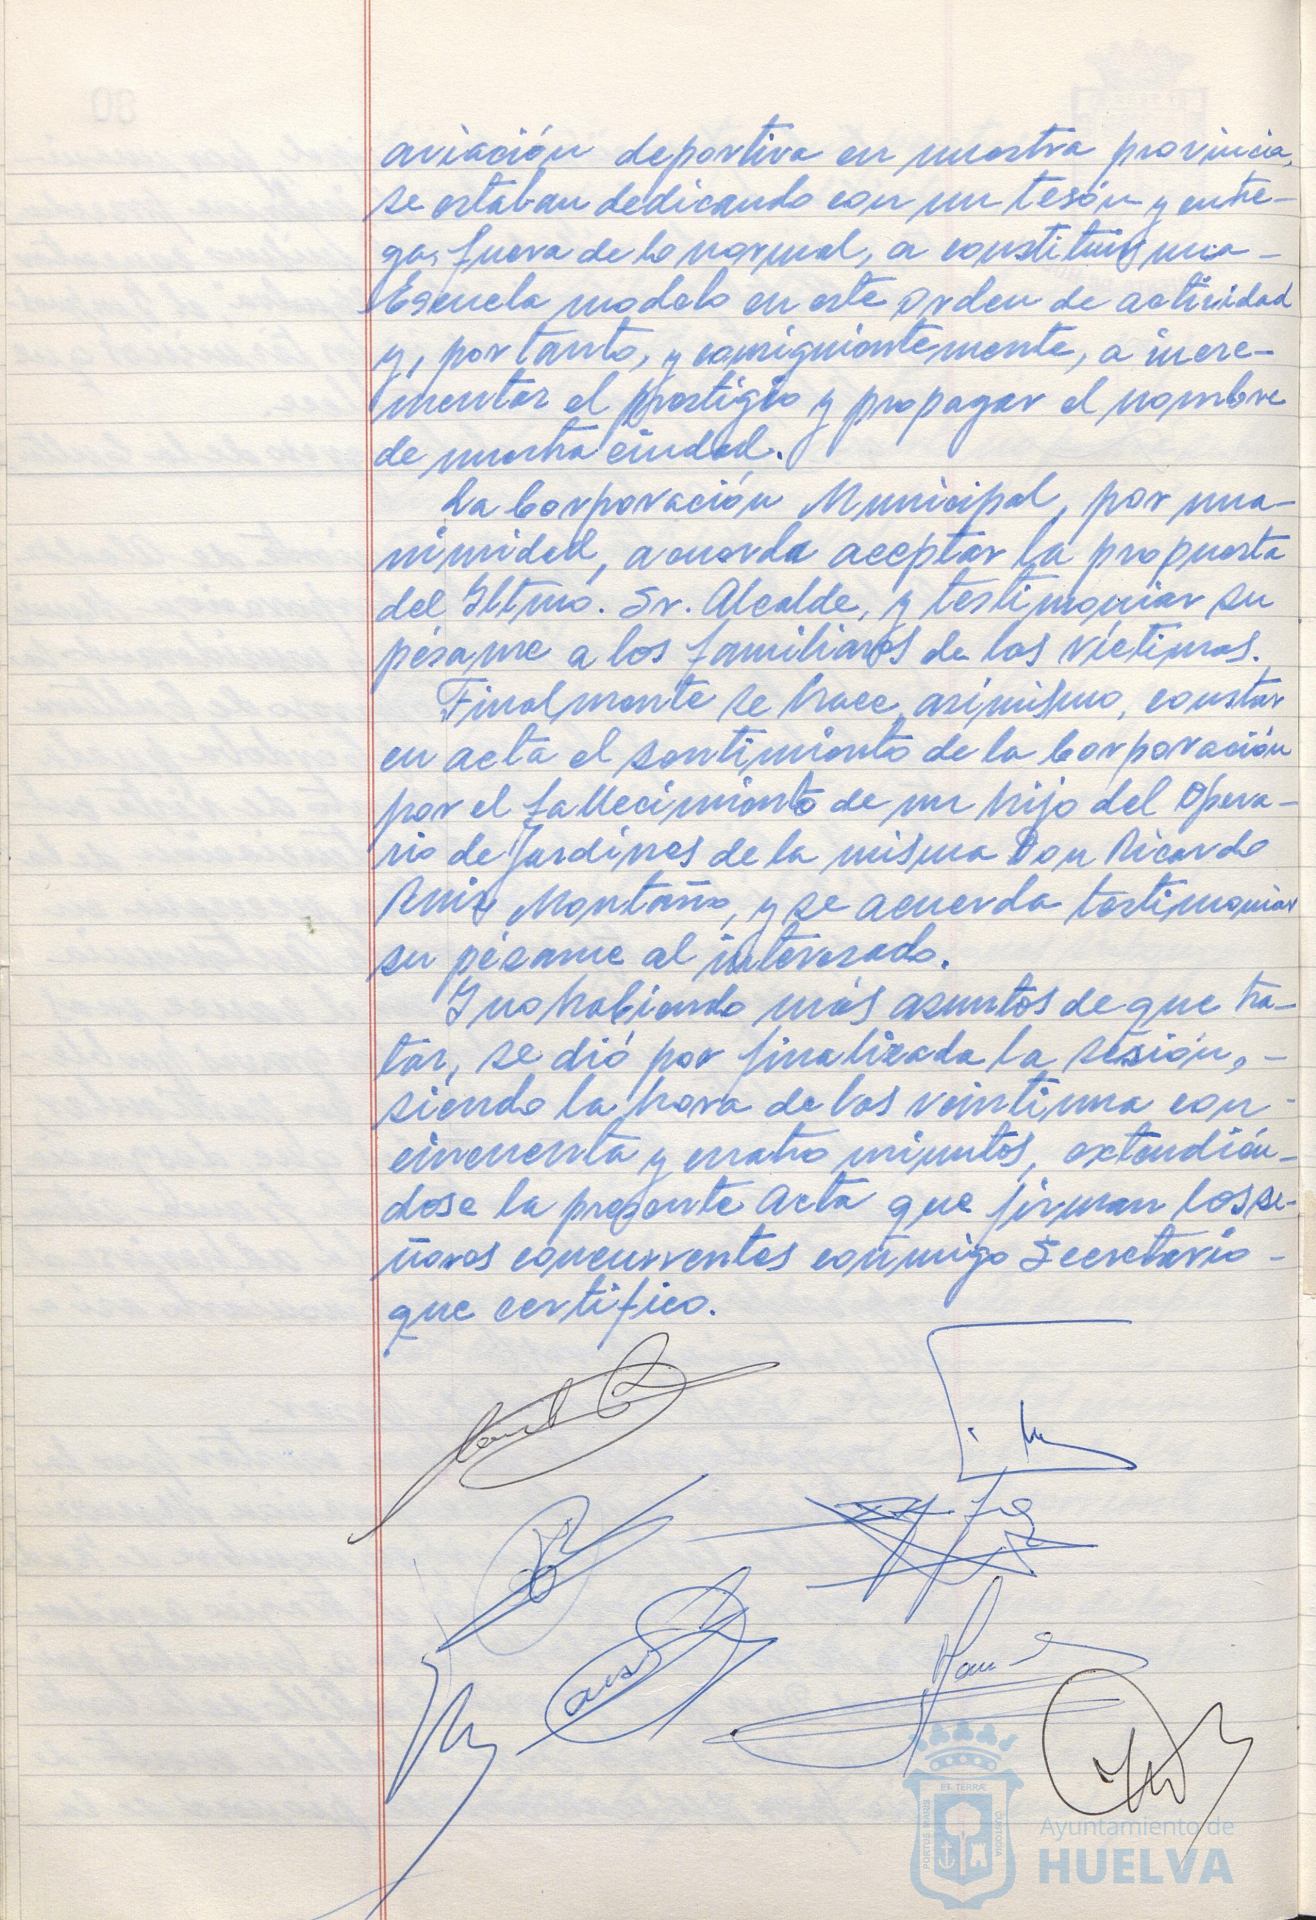 aviación deportiva en nuestra provincia,
se estaban dedicando con un tesón y entre-
ga, fuera de lo normal, a constituir una
Escuela modelo en este orden de actividad
y, por tanto, y consiguientemente, a incre-
mentar el prestigio y propagar el nombre
de nuestra ciudad.
La Corporación Municipal, por una-
nimidad, acuerda aceptar la propuesta
del Iltmo. Sr. Alcalde, y testimoniar su
pésame a los familiares de las víctimas.
Finalmente se hace, asimismo, constar
en acta el sentimiento de la Corporación
por el fallecimiento de un hijo del Opera-
rio de Jardines de la misma Don Ricardo
Ruiz Montaño, y se acuerda testimoniar
su pésame al interesado.
Y no habiendo más asuntos de que tra-
tar, se dió por finalizada la sesión, -
siendo la hora de las veintiuna con -
cincuenta y cuatro minutos, extendién-
dose la presente Acta que firman los se-
ñores concurrentes conmigo Secretario -
que certifico.
ET TERRÆ
PORTUS MARIS
CUSTODIA
Ayuntamiento de
HUELVA